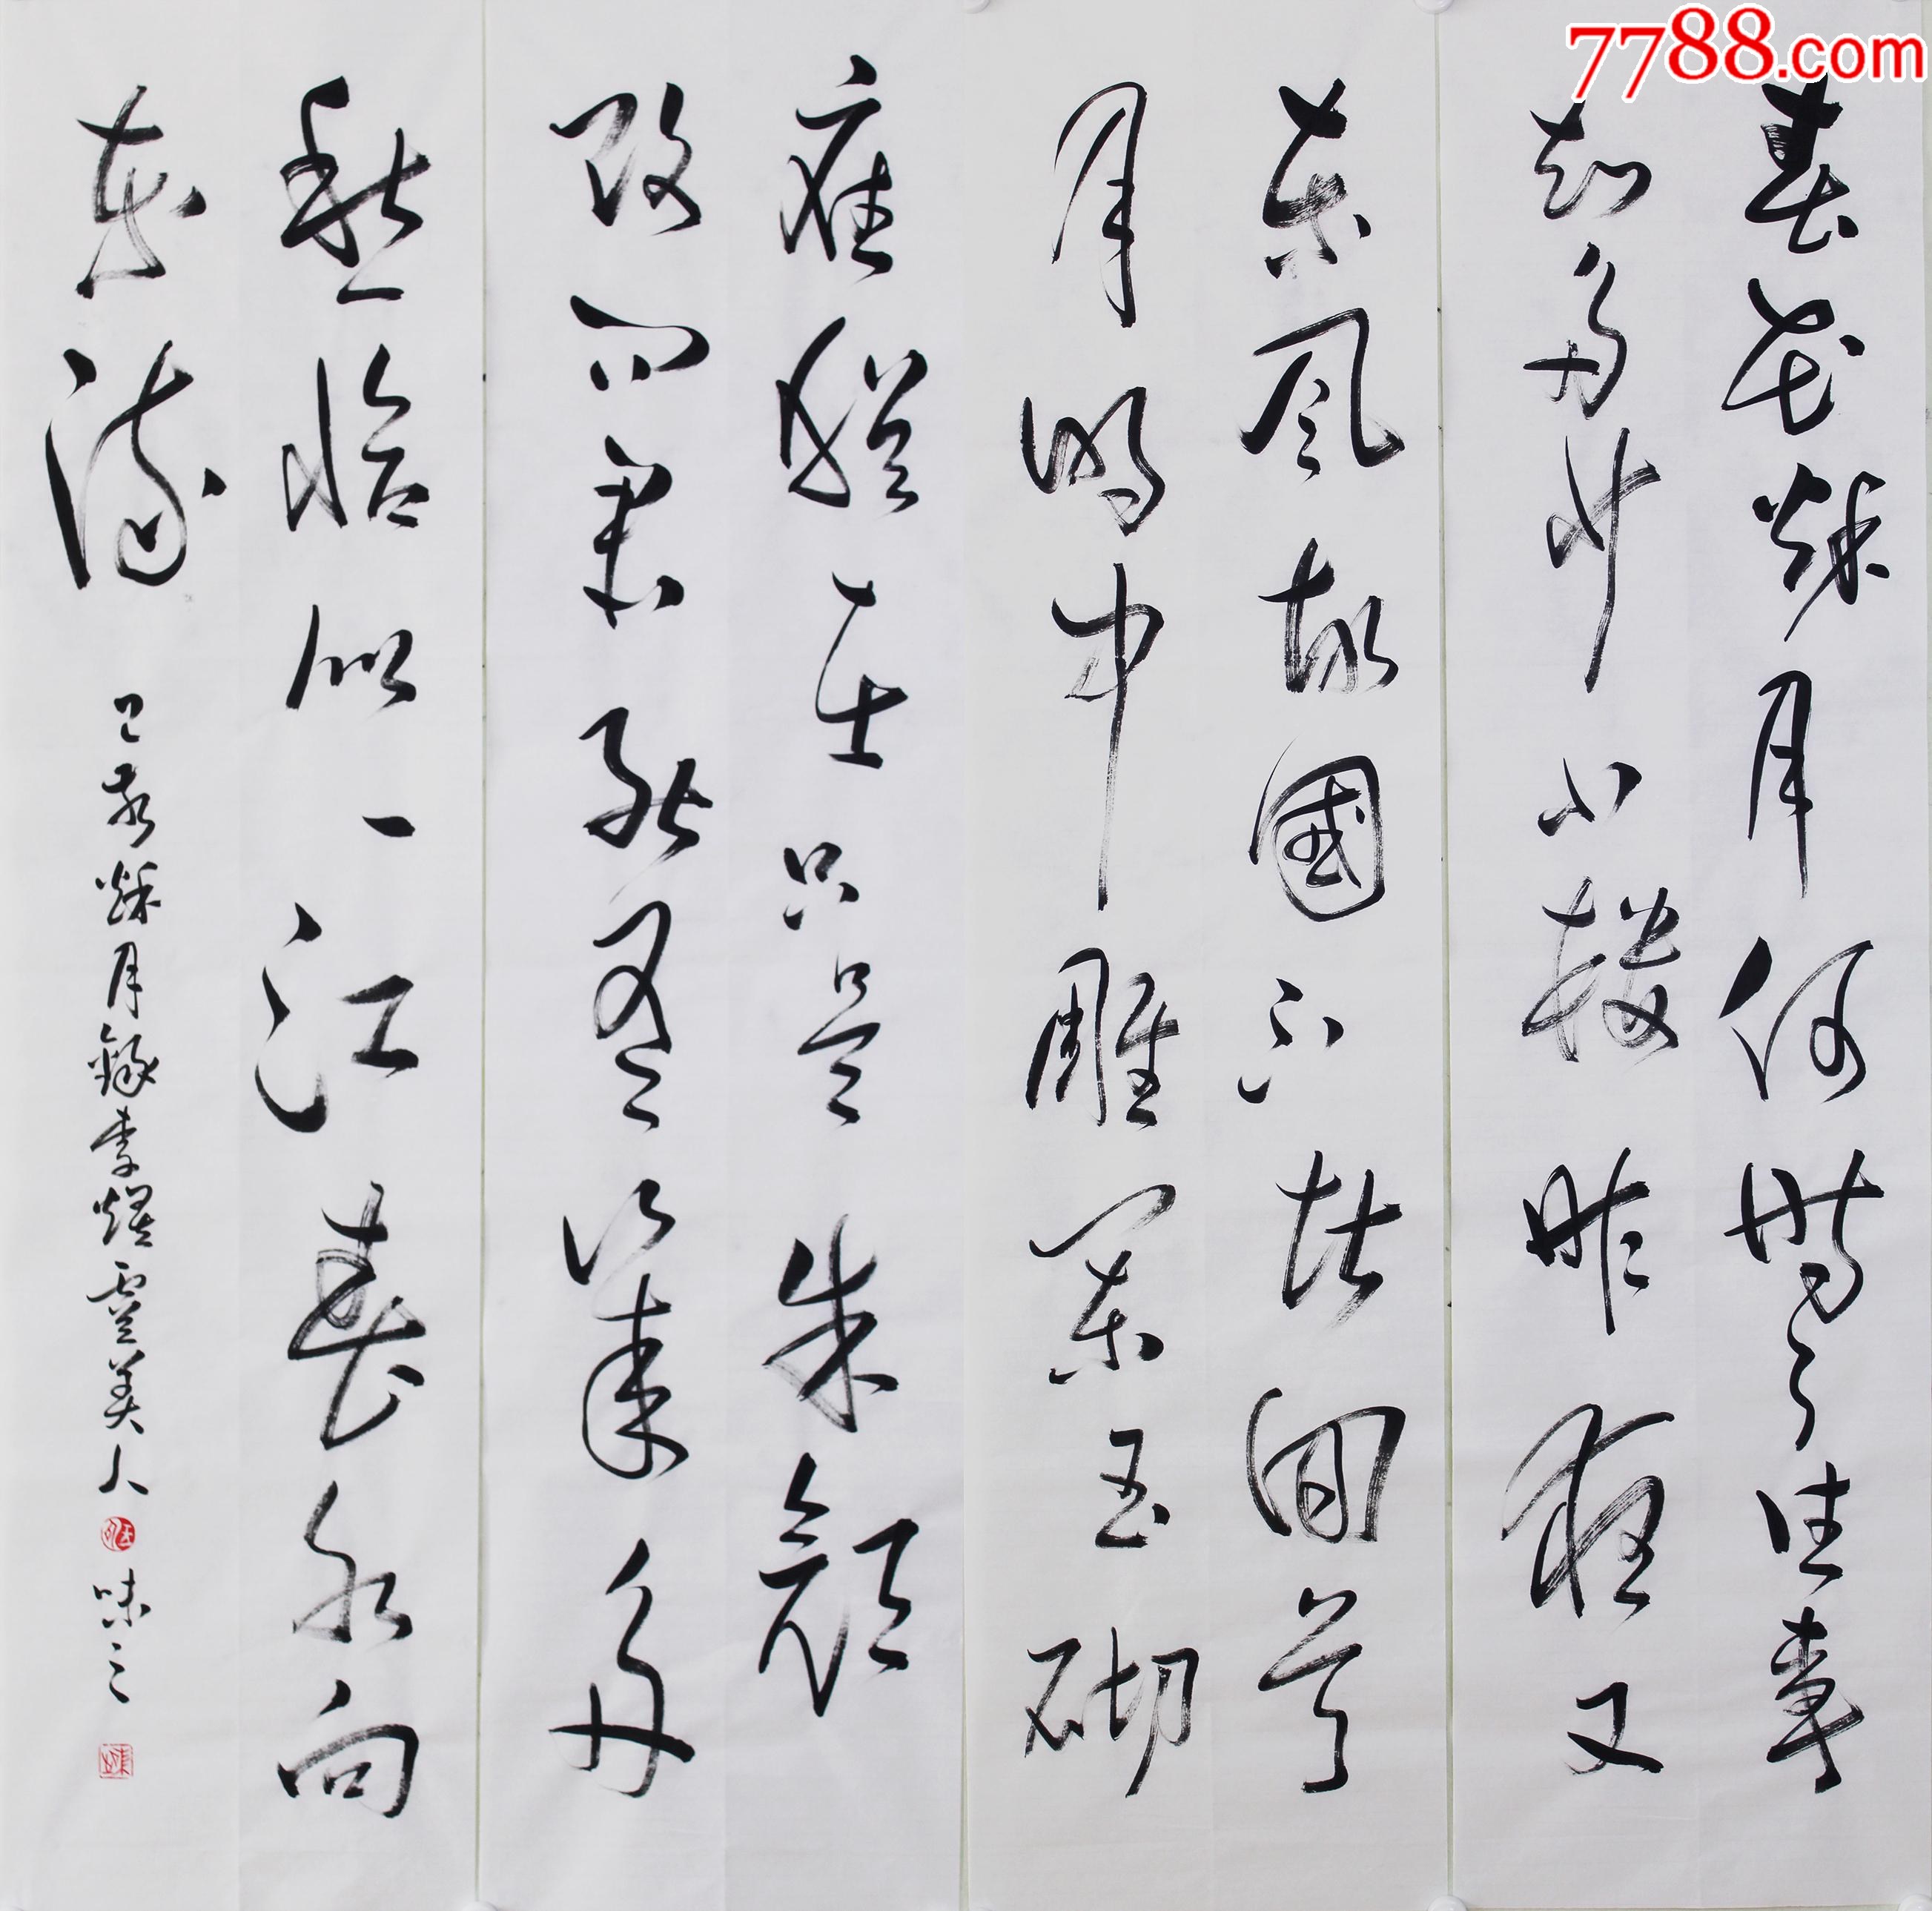 7788.com
春花秌月何時了往事
知多少小樓昨夜又
東風故國不堪回首
月明中雕闌玉砌
應猶在只是朱顏
改問君能有幾多
愁恰似一江春水向
東流
己亥秌月錄李煜虞美人 味之